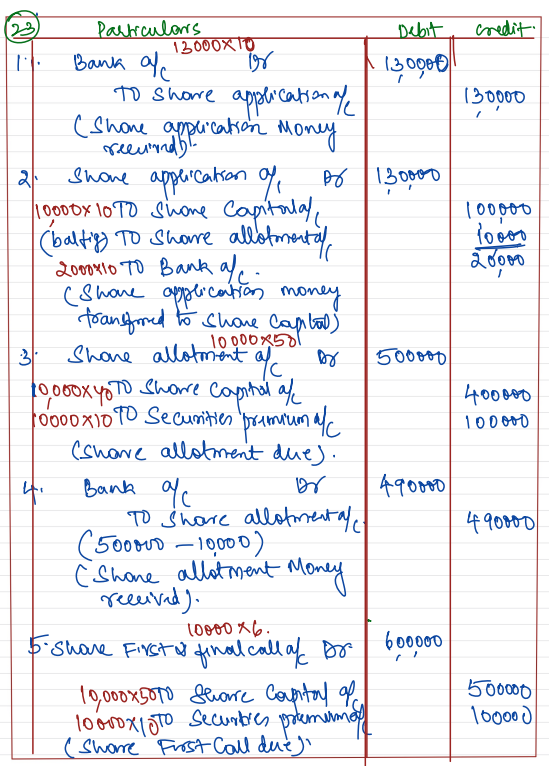 23 Particulars Debit Credit
13000×10
1. Bank a/c Dr 1,30,000
To Share application a/c 130000
(Share application Money
received).
2. Share application a/c Dr 130000
10,000×10 To Share Capital a/c 100000
(bal fig) To Share allotment a/c 10000
2000×10 To Bank a/c. 20,000
(Share application money
transferred to Share Capital)
10000×50
3. Share allotment a/c Dr 500000
10,000×40 To Share Capital a/c 400000
10000×10 To Securities premium a/c 100000
(Share allotment due).
4. Bank a/c Dr 490000
To Share allotment a/c. 490000
(500000 – 10,000)
(Share allotment Money
received).
10000×6.
5. Share First & final call a/c Dr 600000
10,000×50 To Share Capital a/c 500000
10000×10 To Securities premium a/c 100000
(Share First Call due).